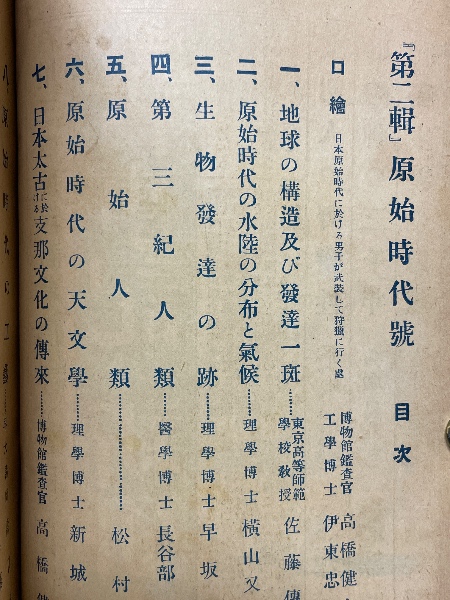 『第二輯』原始時代號　目次
口繪　日本原始時代に於ける男子が武裝して狩獵に行く處　博物館鑑査官　高橋健
工學博士　伊東忠
一、地球の構造及び發達一斑……東京高等師範學校教授　佐藤傳
二、原始時代の水陸の分布と氣候……理學博士　橫山又
三、生物發達の跡……理學博士　早坂
四、第三紀人類……醫學博士　長谷部
五、原始人類……松村
六、原始時代の天文學……理學博士　新城
七、日本太古に於ける支那文化の傳來……博物館鑑査官　高橋健